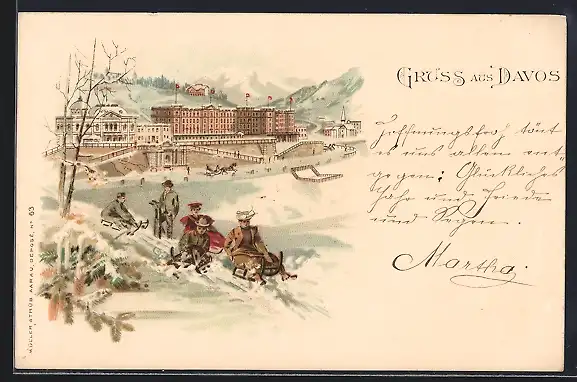 GRUSS AUS DAVOS
Hoffnungsfroh tönt
es uns allen ent-
gegen: Glückliches
Jahr und Frieden
und Segen.
Martha.
MÜLLER & TRÜB AARAU, DEPOSÉ, No 63